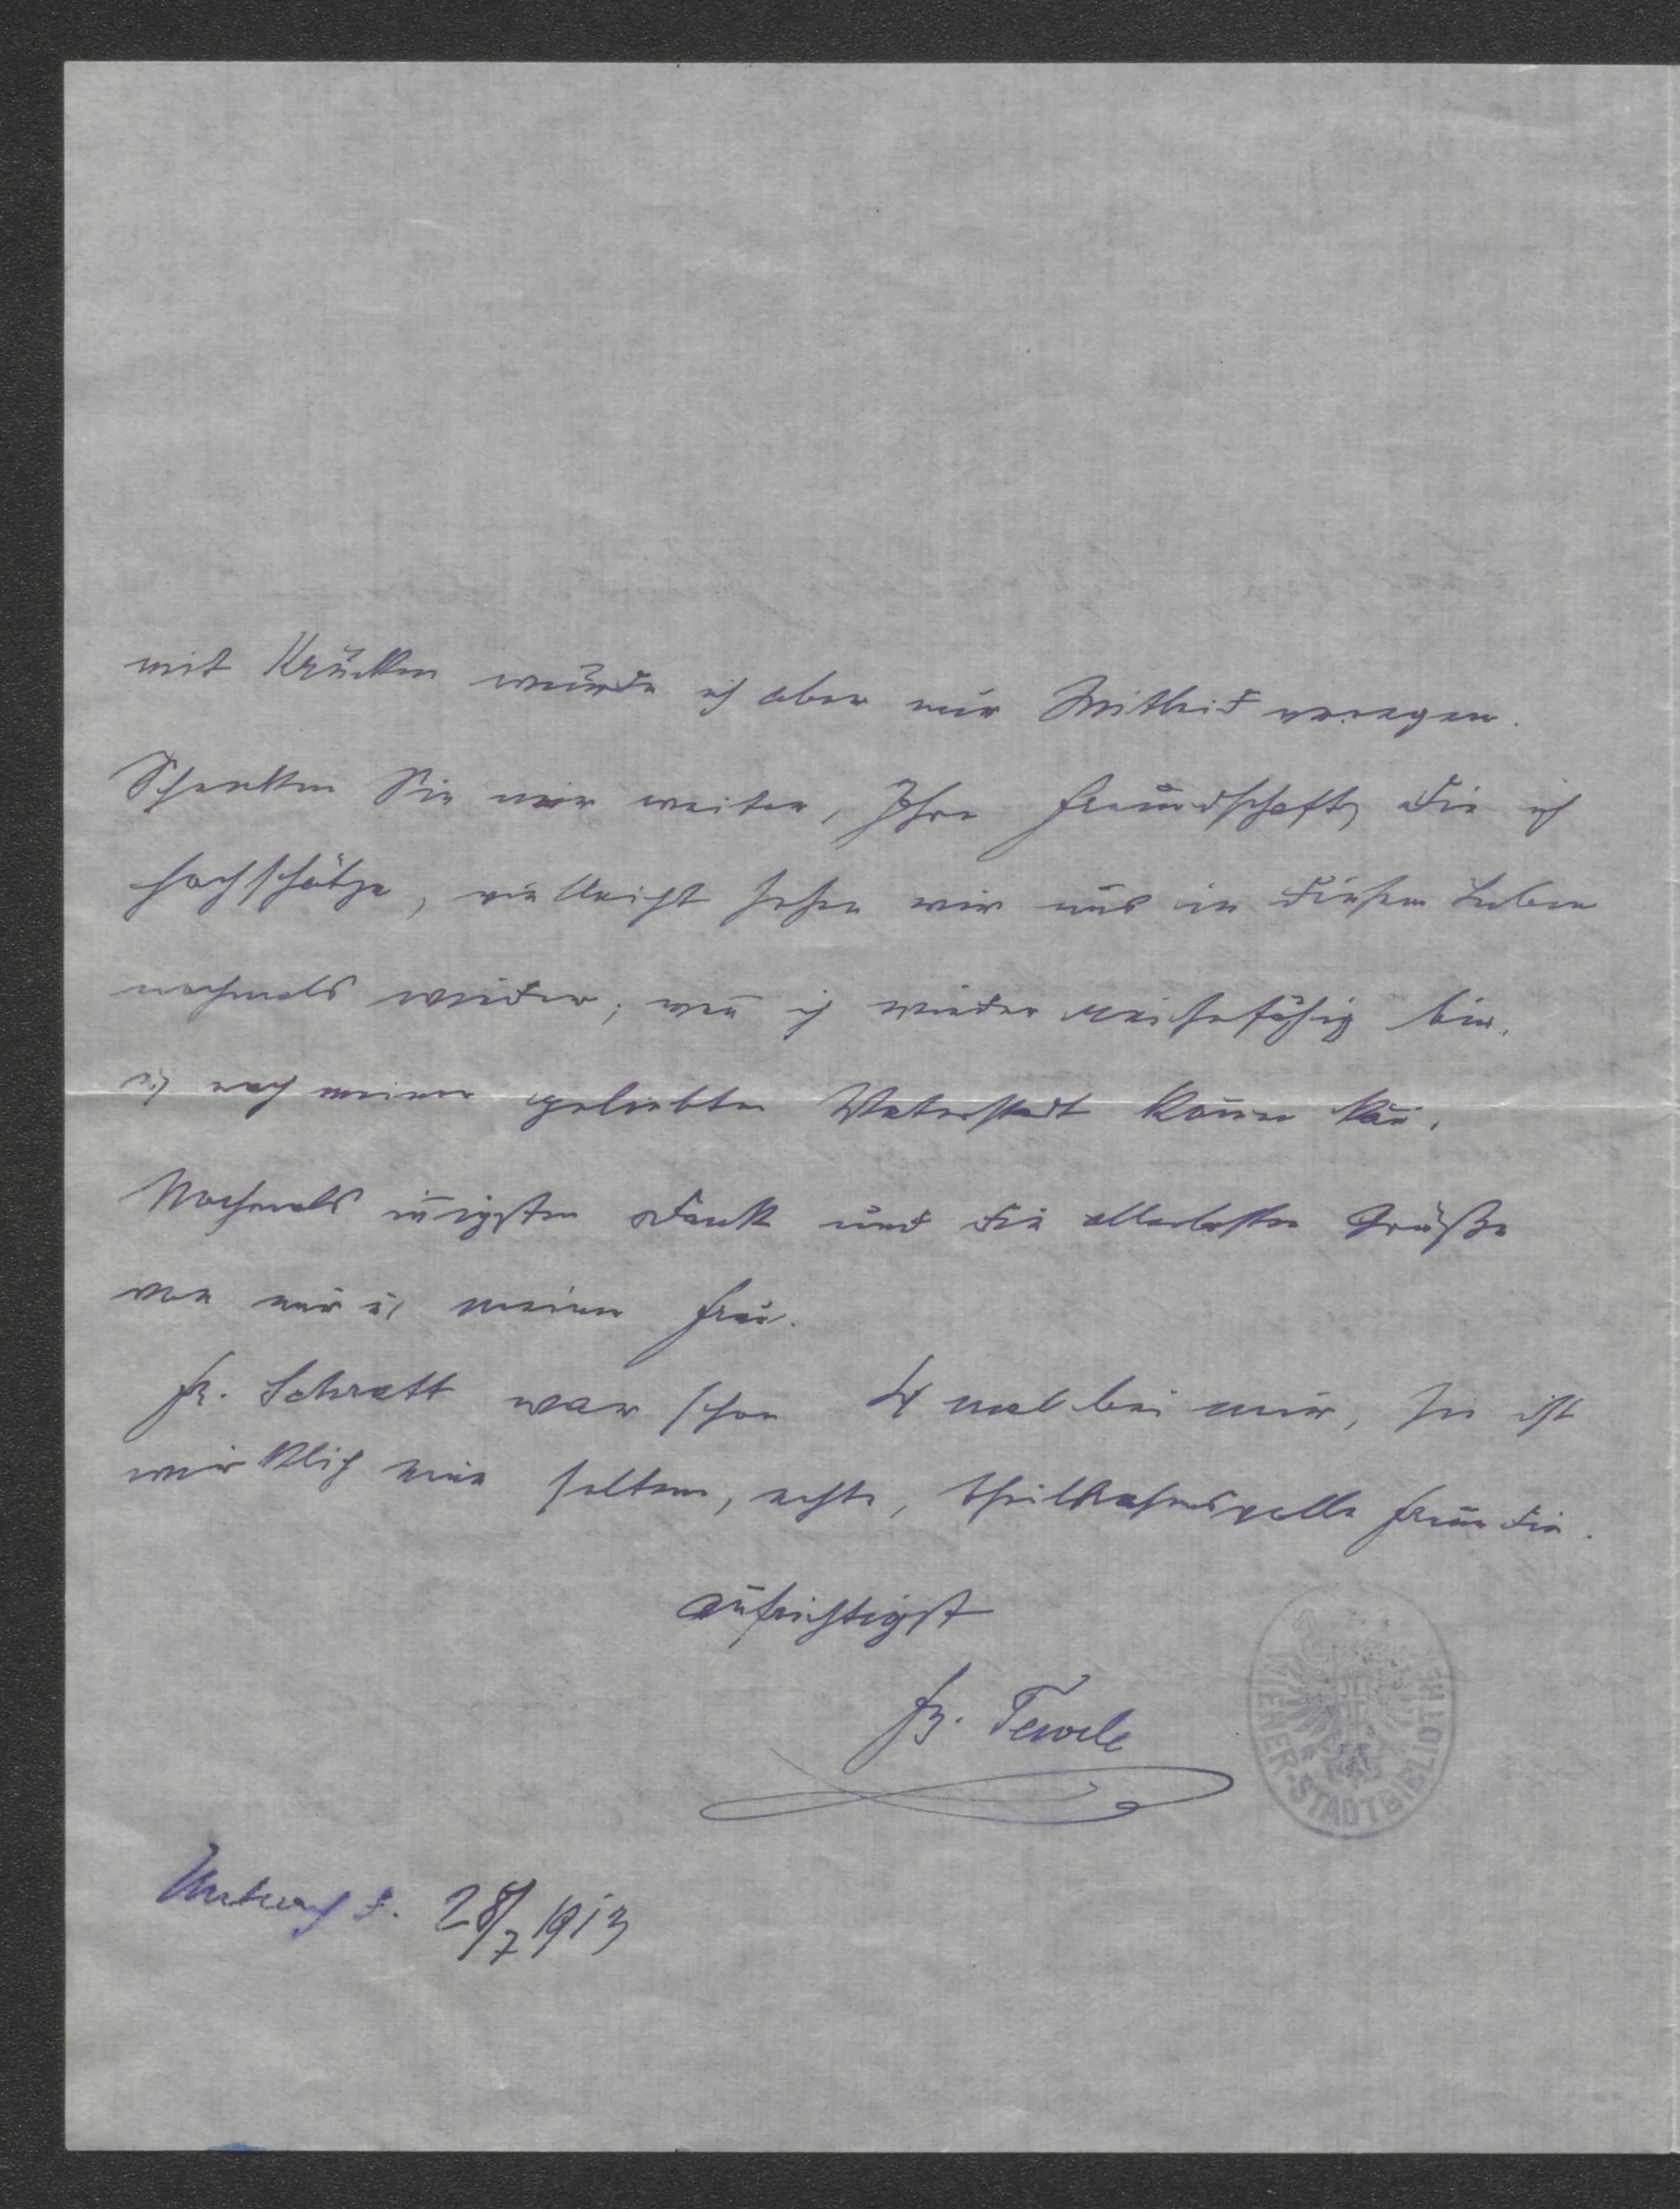 mit Krücken würde ich aber nur Mitleid erregen.
Schenken Sie mir weiter, Ihre Freundschaft, die ich
hochschätze, vielleicht sehen wir uns in diesem Leben
nochmals wieder, wen̄ ich wieder reisefähig bin,
u. nach meiner geliebten Vaterstadt kom̄en kan̄.
Nochmals in̄igsten Dank und die allerbesten Grüße
von mir u. meiner Frau.
Fr. Schratt war schon 4 mal bei mir, sie ist
wirklich eine seltene, echte, theilnahmsvolle Freundin.
Aufrichtigst
Fr. Tewele
28/7 1913
WIENER-STADTBIBLIOTHEK